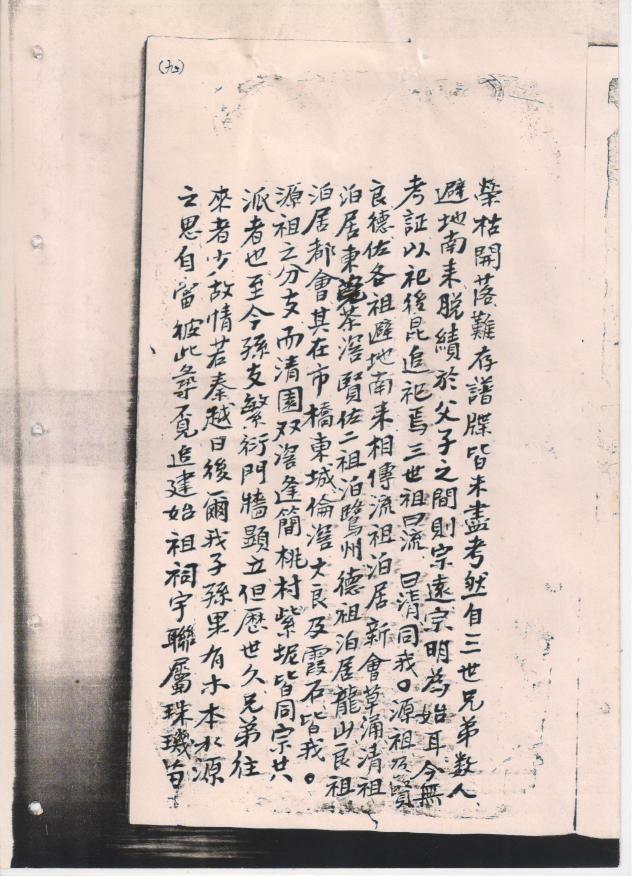 (九)
榮枯開落難存譜牒皆未盡考然自三世兄弟数人
避地南来脱績於父子之間則宗遠宗明為始耳今無
考証以祀後昆追祀焉三世祖曰流 曰清同我。源祖及賢
良德佐各祖避地南来相傳流祖泊居新會草涌清祖
泊居東莞茶滘賢佐二祖泊鷺州德祖泊居龍山良祖
泊居都會其在市橋東城倫滘大良及霞石皆我。
源祖之分支而清園双滘逢簡桃村紫坭皆同宗共
派者也至今孫支繁衍門牆顯立但歷世久兄弟往
來者少故情若秦越日後爾我子孫果有木本水源
之思自當彼此尋覓追建始祖祠宇聯屬珠璣苗